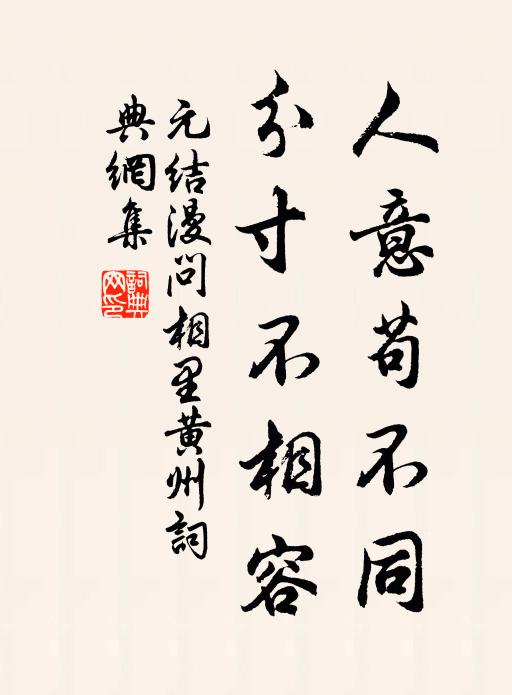 人意苟不同
分寸不相容
元结漫问相里黄州詞
典網集
詞典网印